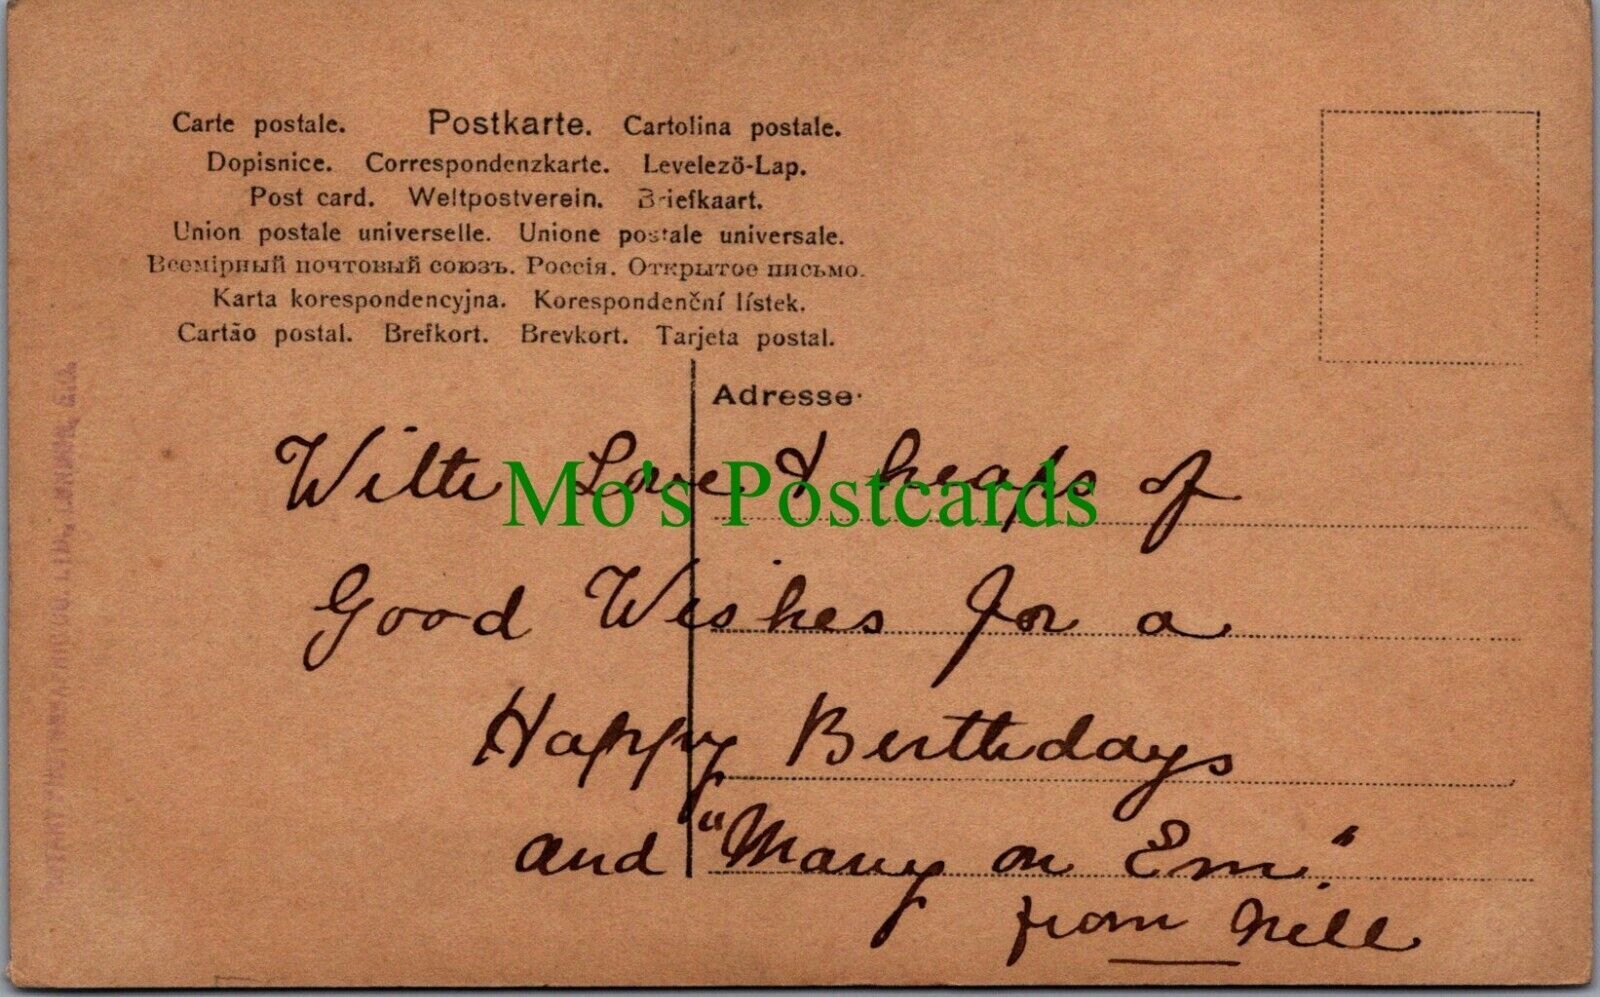 Carte postale. Postkarte. Cartolina postale.
Dopisnice. Correspondenzkarte. Levelező-Lap.
Post card. Weltpostverein. Briefkaart.
Union postale universelle. Unione postale universale.
Всемірный почтовый союзъ. Россія. Открытое письмо.
Karta korespondencyjna. Korespondenční lístek.
Cartão postal. Brefkort. Brevkort. Tarjeta postal.
Adresse
With Love & heaps of
Mo's Postcards
Good Wishes for a
Happy Birthdays
and "Many on Em."
from Nell